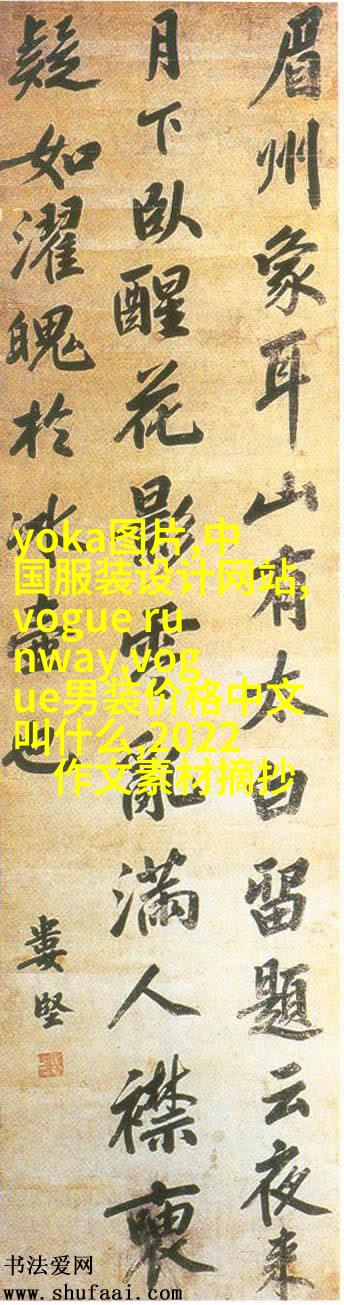 眉州象耳山有太白留題云夜来
月下臥醒花影零亂滿人襟
疑如濯魄於冰壺也
婁堅
yoka图片,中
国服装设计网站,
vogue ru
nway,vog
ue男装价格中文
叫什么,2022
作文素材摘抄
书法爱网
www.shufaai.com